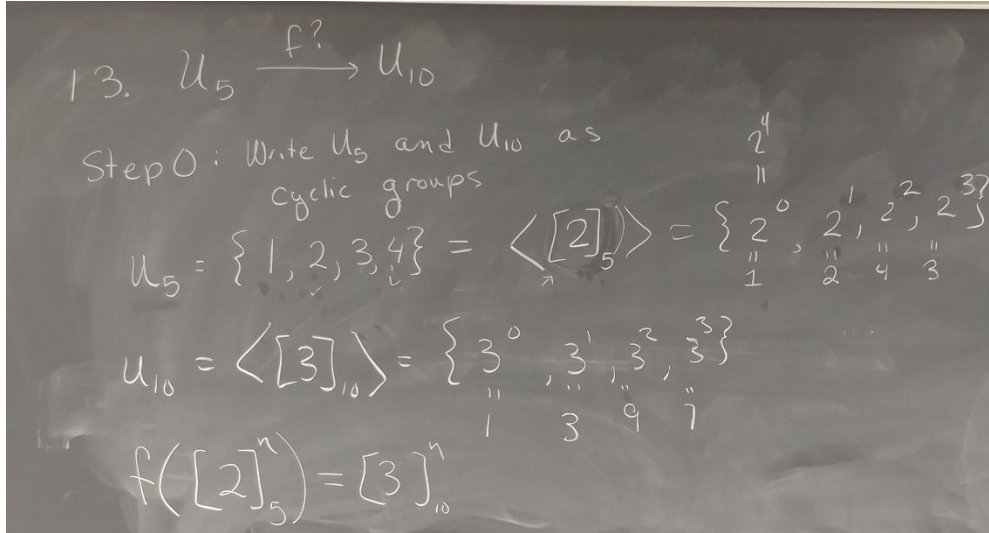 13. U₅ —f?→ U₁₀
Step 0: Write U₅ and U₁₀ as
cyclic groups
2⁴
=
U₅ = {1, 2, 3, 4} = ⟨[2]₅⟩ = {2⁰, 2¹, 2², 2³}
= = = =
1 2 4 3
...
U₁₀ = ⟨[3]₁₀⟩ = {3⁰, 3¹, 3², 3³}
= = = =
1 3 9 7
f([2]₅ⁿ) = [3]₁₀ⁿ